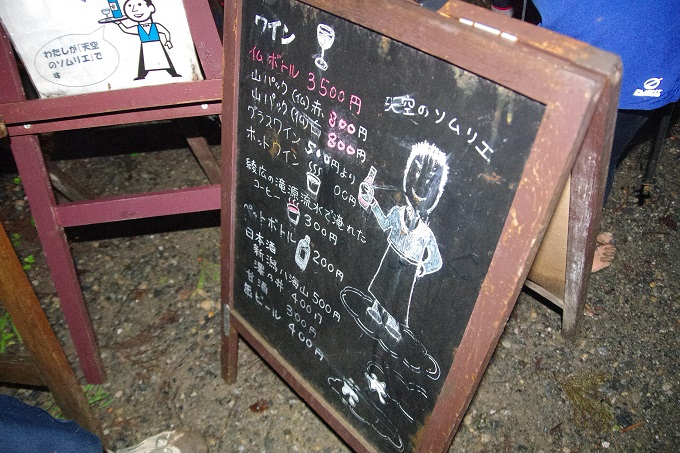 わたしが「天空
のソムリエ」で
す
天空のソムリエ
ワイン
仏ボトル 3500円
山パック(仏)赤 800円
山パック(仏)白 800円
グラスワイン 500円より
ホットワイン 00円
綾広の滝源流水で淹れた
コーヒー 300円
ペットボトル 200円
日本酒
新潟八海山 500円
澤乃井 400円
甘酒 300円
缶ビール 400円